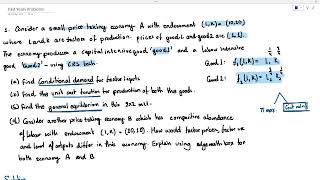 Past Years Problems
1. Consider a small price taking economy A with endowment (L,K) = (20,20)
where L and K are the factors of production. prices of good 1 and good 2 are (1,1).
The economy produce a capital intensive good 'good 1' and a labour intensive
good 'good 2' using CRS tech.
Good 1: f₁(L,K) = L K
Good 2: f₂(L,K) = L K
(a) Find conditional demand for factor inputs
(b) Find the unit cost function for production of both the good.
(c) Find the general equilibrium in this 2x2 well.
(d) Consider another price taking economy B which has comparitive abundance
of labour with endowment (L,K) = (20,10). How would factor prices, factor use
and level of outputs differ in this economy. Explain using edgeworth box for
both economy A and B.
π max.
Cost min